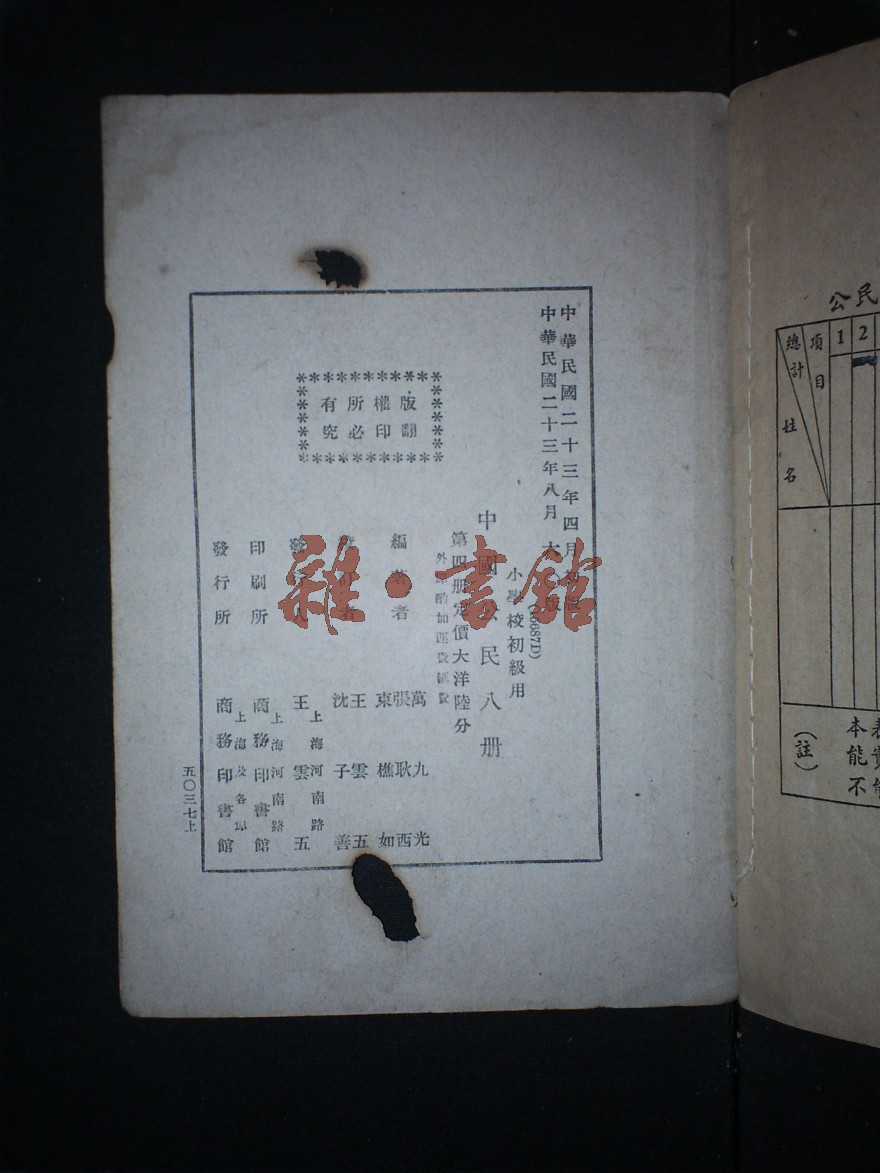 中華民國二十三年四月初版
中華民國二十三年八月大版
(46687D)
小學校初級用
中國公民八册
第四册定價大洋陸分
外埠酌加運費匯費
版權所有
翻印必究
編著者
萬九光
張耿西
束樵如
校訂者
王雲五
沈子善
發行人
王雲五
上海河南路
印刷所
商務印書館
上海河南路
發行所
商務印書館
上海及各埠
五〇三七上
雜·書館
公民
1
2
項目
總計
姓名
(註)
本
能
不